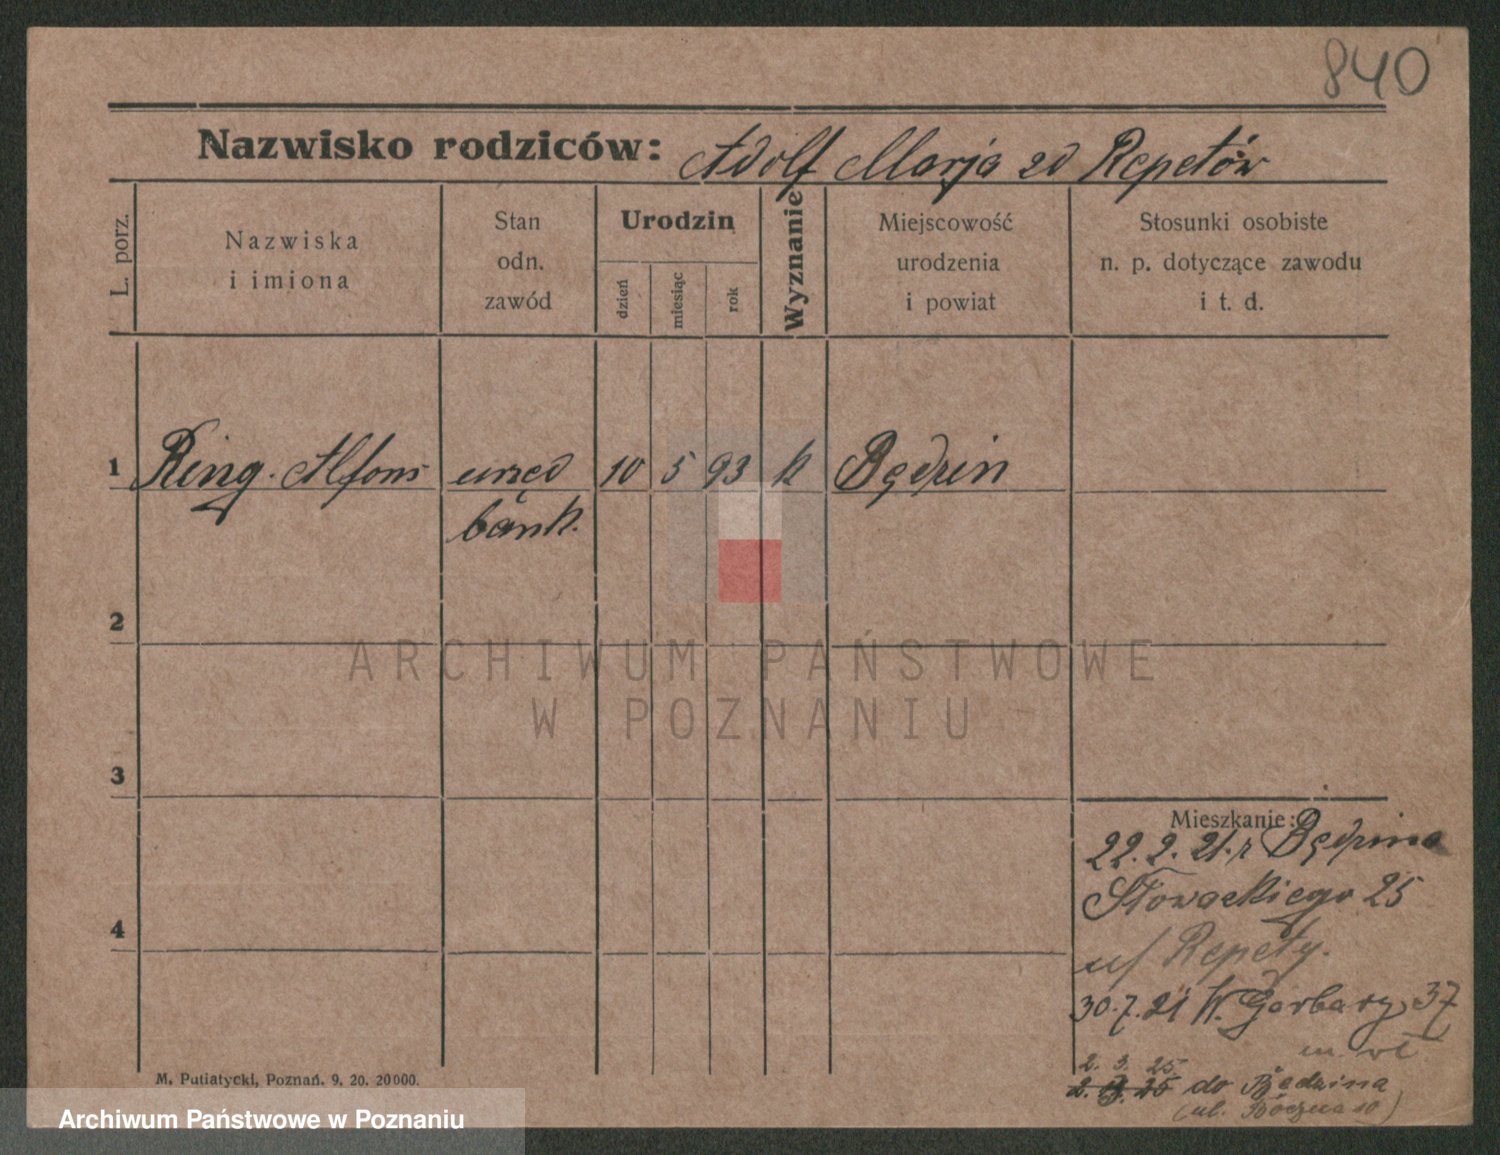 840
Nazwisko rodziców: Adolf Marja zd Repetów
L. porz.
Nazwiska
i imiona
Stan
odn.
zawód
Urodzin
dzień
miesiąc
rok
Wyznanie
Miejscowość
urodzenia
i powiat
Stosunki osobiste
n. p. dotyczące zawodu
i t. d.
1 Ring Alfons urzęd 10 5 93 k Będzin
bank.
2
ARCHIWUM PAŃSTWOWE
W POZNANIU
3
Mieszkanie:
22. 2. 21. z Będzina
Słowackiego 25
4
u/ Repety.
30.7.21 W. Garbary 37
2. 3. 25.
2. 3. 25 do Będzina
(ul. Boczna 10)
M. Putiatycki, Poznań. 9. 20. 20000.
Archiwum Państwowe w Poznaniu